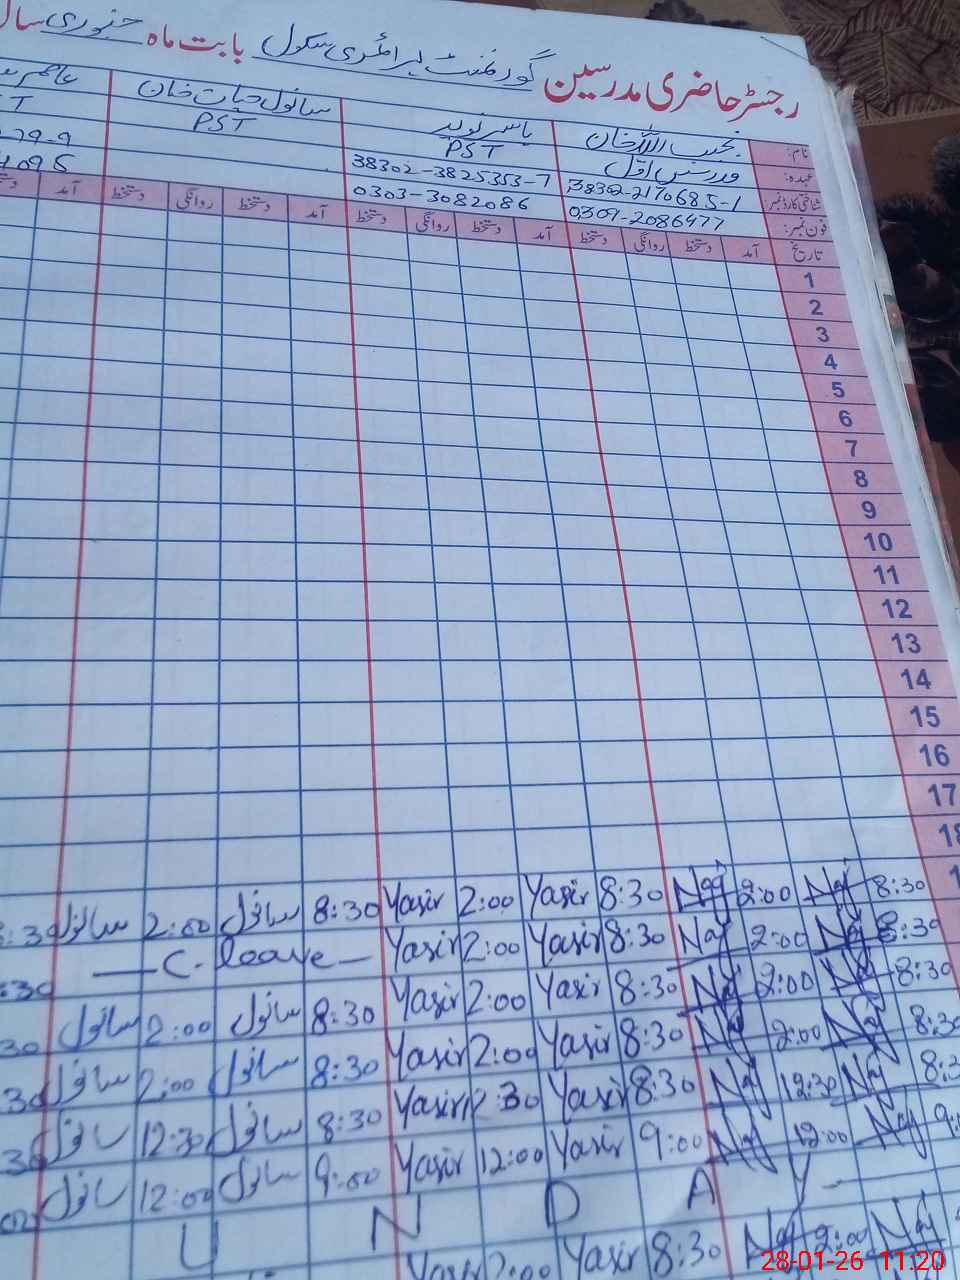 رجسٹر حاضری مدرسین گورنمنٹ پرائمری سکول بابت ماہ جنوری سال
نام: نجیب اللہ خان یاسر نوید سانول حیات خان عاصم
عہدہ: مدرس اول PST PST
شناختی کارڈ نمبر: 38302-2170685-1 38302-3825353-7
فون نمبر: 0309-2086477 0303-3082086
تاریخ آمد دستخط روانگی دستخط آمد دستخط روانگی دستخط آمد دستخط روانگی دستخط آمد
1
2
3
4
5
6
7
8
9
10
11
12
13
14
15
16
17
18
8:30 Naj 2:00 Naj 8:30 Yasir 2:00 Yasir 8:30 سانول 2:00 سانول
8:30 Naj 2:00 Naj 8:30 Yasir 2:00 Yasir — C. leave —
8:30 Naj 2:00 Naj 8:30 Yasir 2:00 Yasir 8:30 سانول 2:00 سانول
8:30 Naj 2:00 Naj 8:30 Yasir 2:00 Yasir 8:30 سانول 2:00 سانول
Naj 12:30 Naj 8:30 Yasir 12:30 Yasir 8:30 سانول 12:30 سانول
Naj 12:00 Naj 9:00 Yasir 12:00 Yasir 9:00 سانول 12:00 سانول
U N D A Y
Naj 2:00 Naj 8:30 Yasir 2:00 Yasir
28-01-26 11:20